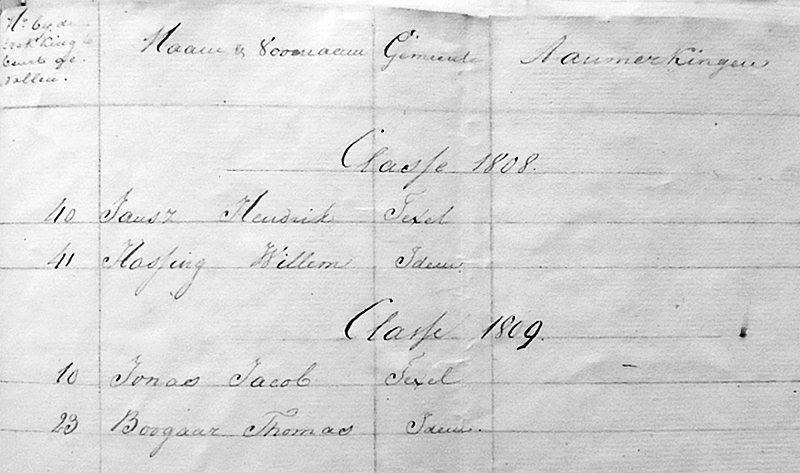 No. by de
trekking te
beurt ge-
vallen.
Naam & Voornaam Gemeente Aanmerkingen
Classe 1808.
40 Jansz Hendrik Texel
41 Hassing Willem Idem.
Classe 1809.
10 Jonas Jacob Texel
23 Boogaar Thomas Idem.